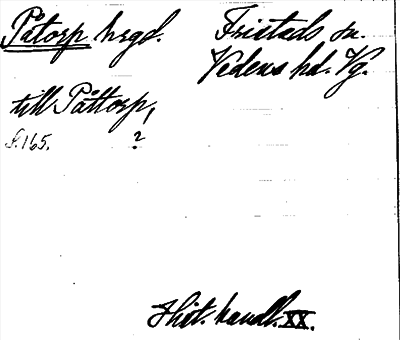 Påtorp hrgd. Fristads sn.
Vedens hd. Vg.
till Påttorp,
S. 165. ?
Hist. handl. XX.